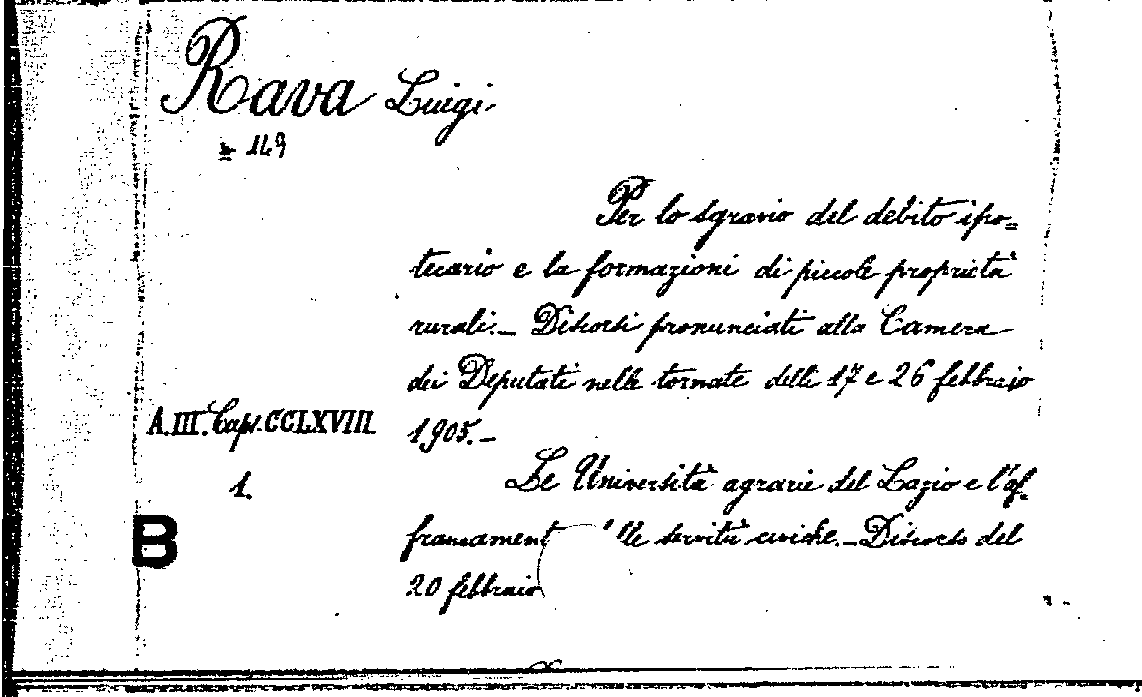 Rava Luigi
= 149
Per lo sgravio del debito ipo=
tecario e la formazioni di piccole proprietà
rurali. _ Discorsi pronunciati alla Camera
dei Deputati nelle tornate delli 17 e 26 febbraio
A. III. Caps. CCLXVIII. 1905. _
1.
Le Università agrarie del Lazio e l'af-
B
francament lle servitù civiche. _ Discorso del
20 febbraio